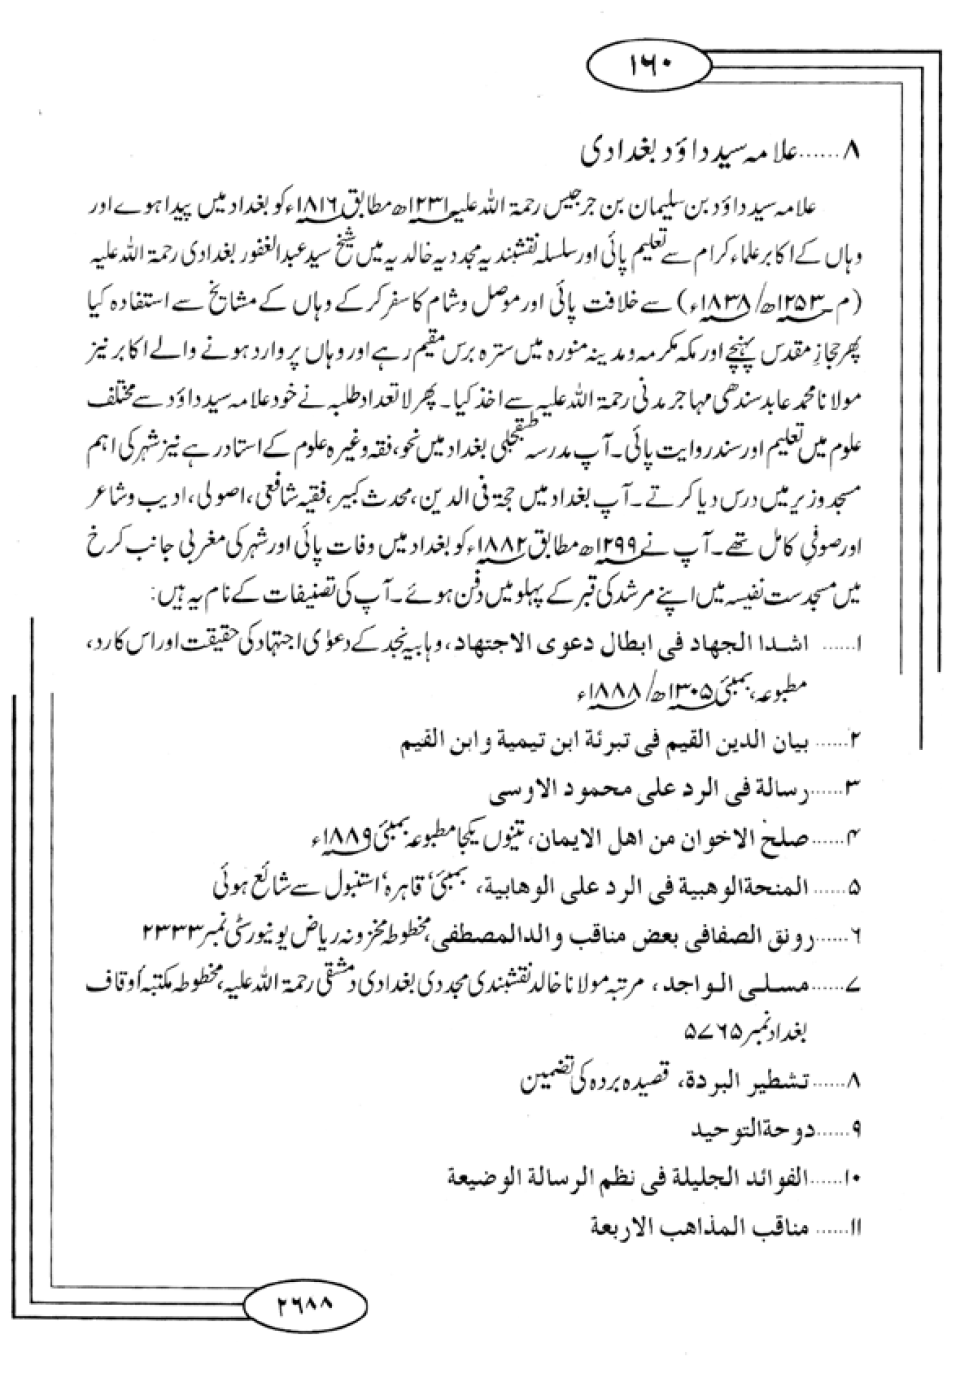 ۱۶۰
۸......علامہ سید داؤد بغدادی
علامہ سید داؤد بن سلیمان بن جرجیس رحمۃ اللہ علیہ ۱۲۳۱ھ مطابق ۱۸۱۶ء کو بغداد میں پیدا ہوے اور
وہاں کے اکابر علماء کرام سے تعلیم پائی اور سلسلہ نقشبندیہ مجددیہ خالدیہ میں شیخ سید عبدالغفور بغدادی رحمۃ اللہ علیہ
(م ۱۲۵۳ھ/۱۸۳۸ء) سے خلافت پائی اور موصل و شام کا سفر کرکے وہاں کے مشایخ سے استفادہ کیا
پھر حجازِ مقدس پہنچے اور مکہ مکرمہ و مدینہ منورہ میں سترہ برس مقیم رہے اور وہاں پر وارد ہونے والے اکابر نیز
مولانا محمد عابد سندھی مہاجر مدنی رحمۃ اللہ علیہ سے اخذ کیا۔ پھر لا تعداد طلبہ نے خود علامہ سید داؤد سے مختلف
علوم میں تعلیم اور سند روایت پائی۔ آپ مدرسہ طبقجلی بغداد میں نحو، فقہ وغیرہ علوم کے استاد رہے نیز شہر کی اہم
مسجد وزیر میں درس دیا کرتے۔ آپ بغداد میں حجۃ فی الدین، محدث کبیر، فقیہ شافعی، اصولی، ادیب و شاعر
اور صوفیِ کامل تھے۔ آپ نے ۱۲۹۹ھ مطابق ۱۸۸۲ء کو بغداد میں وفات پائی اور شہر کی مغربی جانب کرخ
میں مسجد ست نفیسہ میں اپنے مرشد کی قبر کے پہلو میں دفن ہوئے۔ آپ کی تصنیفات کے نام یہ ہیں:
۱...... اشدا الجهاد فی ابطال دعوی الاجتهاد، وہابیہ نجد کے دعوٰی اجتہاد کی حقیقت اور اس کا رد،
مطبوعہ، بمبئی ۱۳۰۵ھ/۱۸۸۸ء
۲...... بیان الدین القیم فی تبرئة ابن تیمیة و ابن القیم
۳......رسالة فی الرد علی محمود الاوسی
۴......صلح الاخوان من اهل الایمان، تینوں یکجا مطبوعہ بمبئی ۱۸۸۹ء
۵...... المنحة الوهبیة فی الرد علی الوهابیة، بمبئی‘ قاہرہ‘ استنبول سے شائع ہوئی
۶......رونق الصفافی بعض مناقب والدالمصطفی، مخطوطہ مخزونہ ریاض یونیورسٹی نمبر ۲۳۳۳
۷......مسلی الواجد، مرتبہ مولانا خالد نقشبندی مجددی بغدادی دمشقی رحمۃ اللہ علیہ، مخطوطہ مکتبہ أوقاف
بغداد نمبر ۵۷۶۵
۸......تشطیر البردة، قصیدہ بردہ کی تضمین
۹......دوحةالتوحید
۱۰......الفوائد الجلیلة فی نظم الرسالة الوضیعة
۱۱...... مناقب المذاهب الاربعة
۲۶۸۸